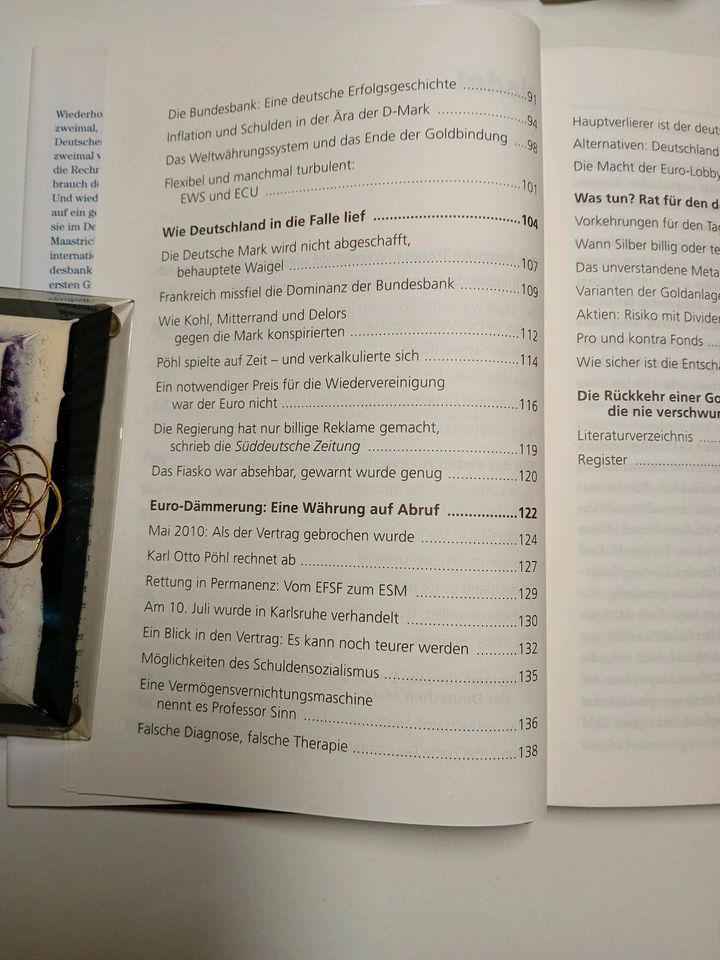 Wiederho
zweimal,
Deutsche
zweimal v
die Rechr
brauch de
Und wied
auf ein ge
sie im De
Maastric
internati
desbank
ersten G
Die Bundesbank: Eine deutsche Erfolgsgeschichte ..................91
Inflation und Schulden in der Ära der D-Mark ........................94
Das Weltwährungssystem und das Ende der Goldbindung ....98
Flexibel und manchmal turbulent:
EWS und ECU ................................................................101
Wie Deutschland in die Falle lief ......................................104
Die Deutsche Mark wird nicht abgeschafft,
behauptete Waigel ..........................................................107
Frankreich missfiel die Dominanz der Bundesbank ................109
Wie Kohl, Mitterrand und Delors
gegen die Mark konspirierten ..........................................112
Pöhl spielte auf Zeit – und verkalkulierte sich ........................114
Ein notwendiger Preis für die Wiedervereinigung
war der Euro nicht ..........................................................116
Die Regierung hat nur billige Reklame gemacht,
schrieb die Süddeutsche Zeitung ......................................119
Das Fiasko war absehbar, gewarnt wurde genug ..................120
Euro-Dämmerung: Eine Währung auf Abruf .................122
Mai 2010: Als der Vertrag gebrochen wurde ........................124
Karl Otto Pöhl rechnet ab ....................................................127
Rettung in Permanenz: Vom EFSF zum ESM ........................129
Am 10. Juli wurde in Karlsruhe verhandelt ............................130
Ein Blick in den Vertrag: Es kann noch teurer werden ..........132
Möglichkeiten des Schuldensozialismus ................................135
Eine Vermögensvernichtungsmaschine
nennt es Professor Sinn ....................................................136
Falsche Diagnose, falsche Therapie ........................................138
Hauptverlierer ist der deuts
Alternativen: Deutschland
Die Macht der Euro-Lobby
Was tun? Rat für den d
Vorkehrungen für den Tag
Wann Silber billig oder te
Das unverstandene Meta
Varianten der Goldanlage
Aktien: Risiko mit Divider
Pro und kontra Fonds ....
Wie sicher ist die Entschä
Die Rückkehr einer Go
die nie verschwu
Literaturverzeichnis ......
Register ......................